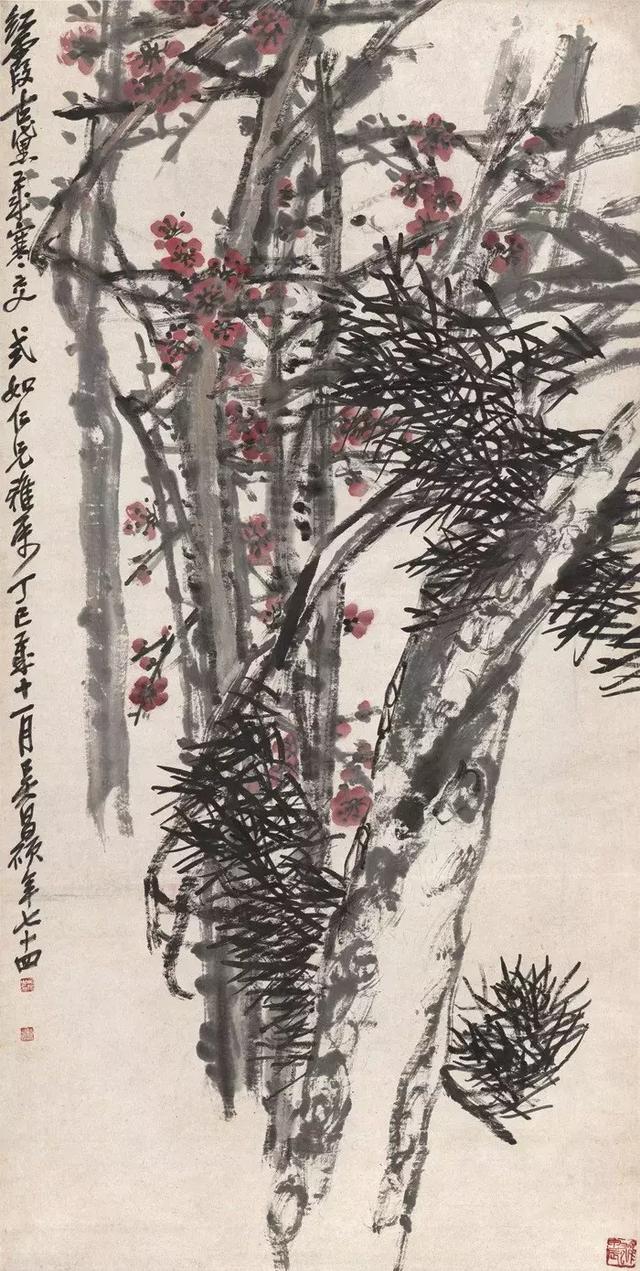 紅霞古黛歲寒之交 式如仁兄雅屬 丁巳歲十一月 吳昌碩年七十四